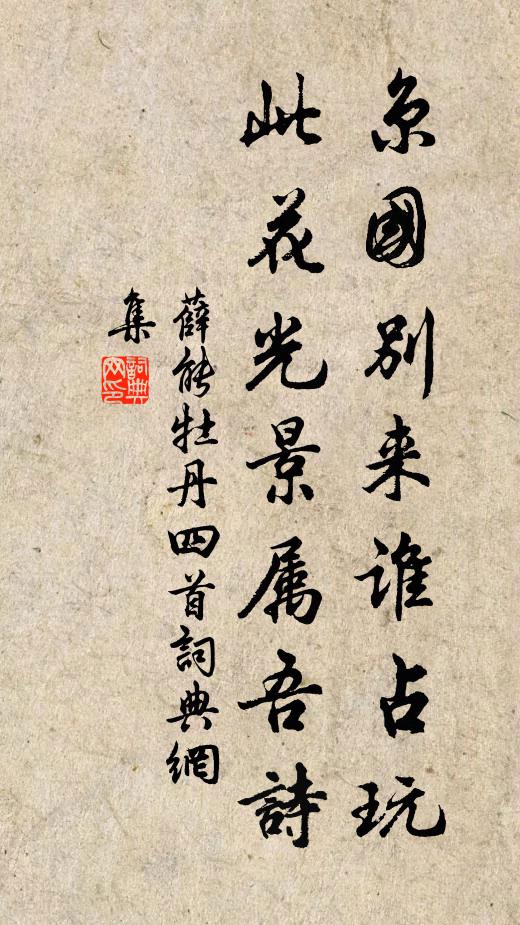 京國别来誰占玩
此花光景属吾詩
薛能牡丹四首詞典網
集
詞典網印